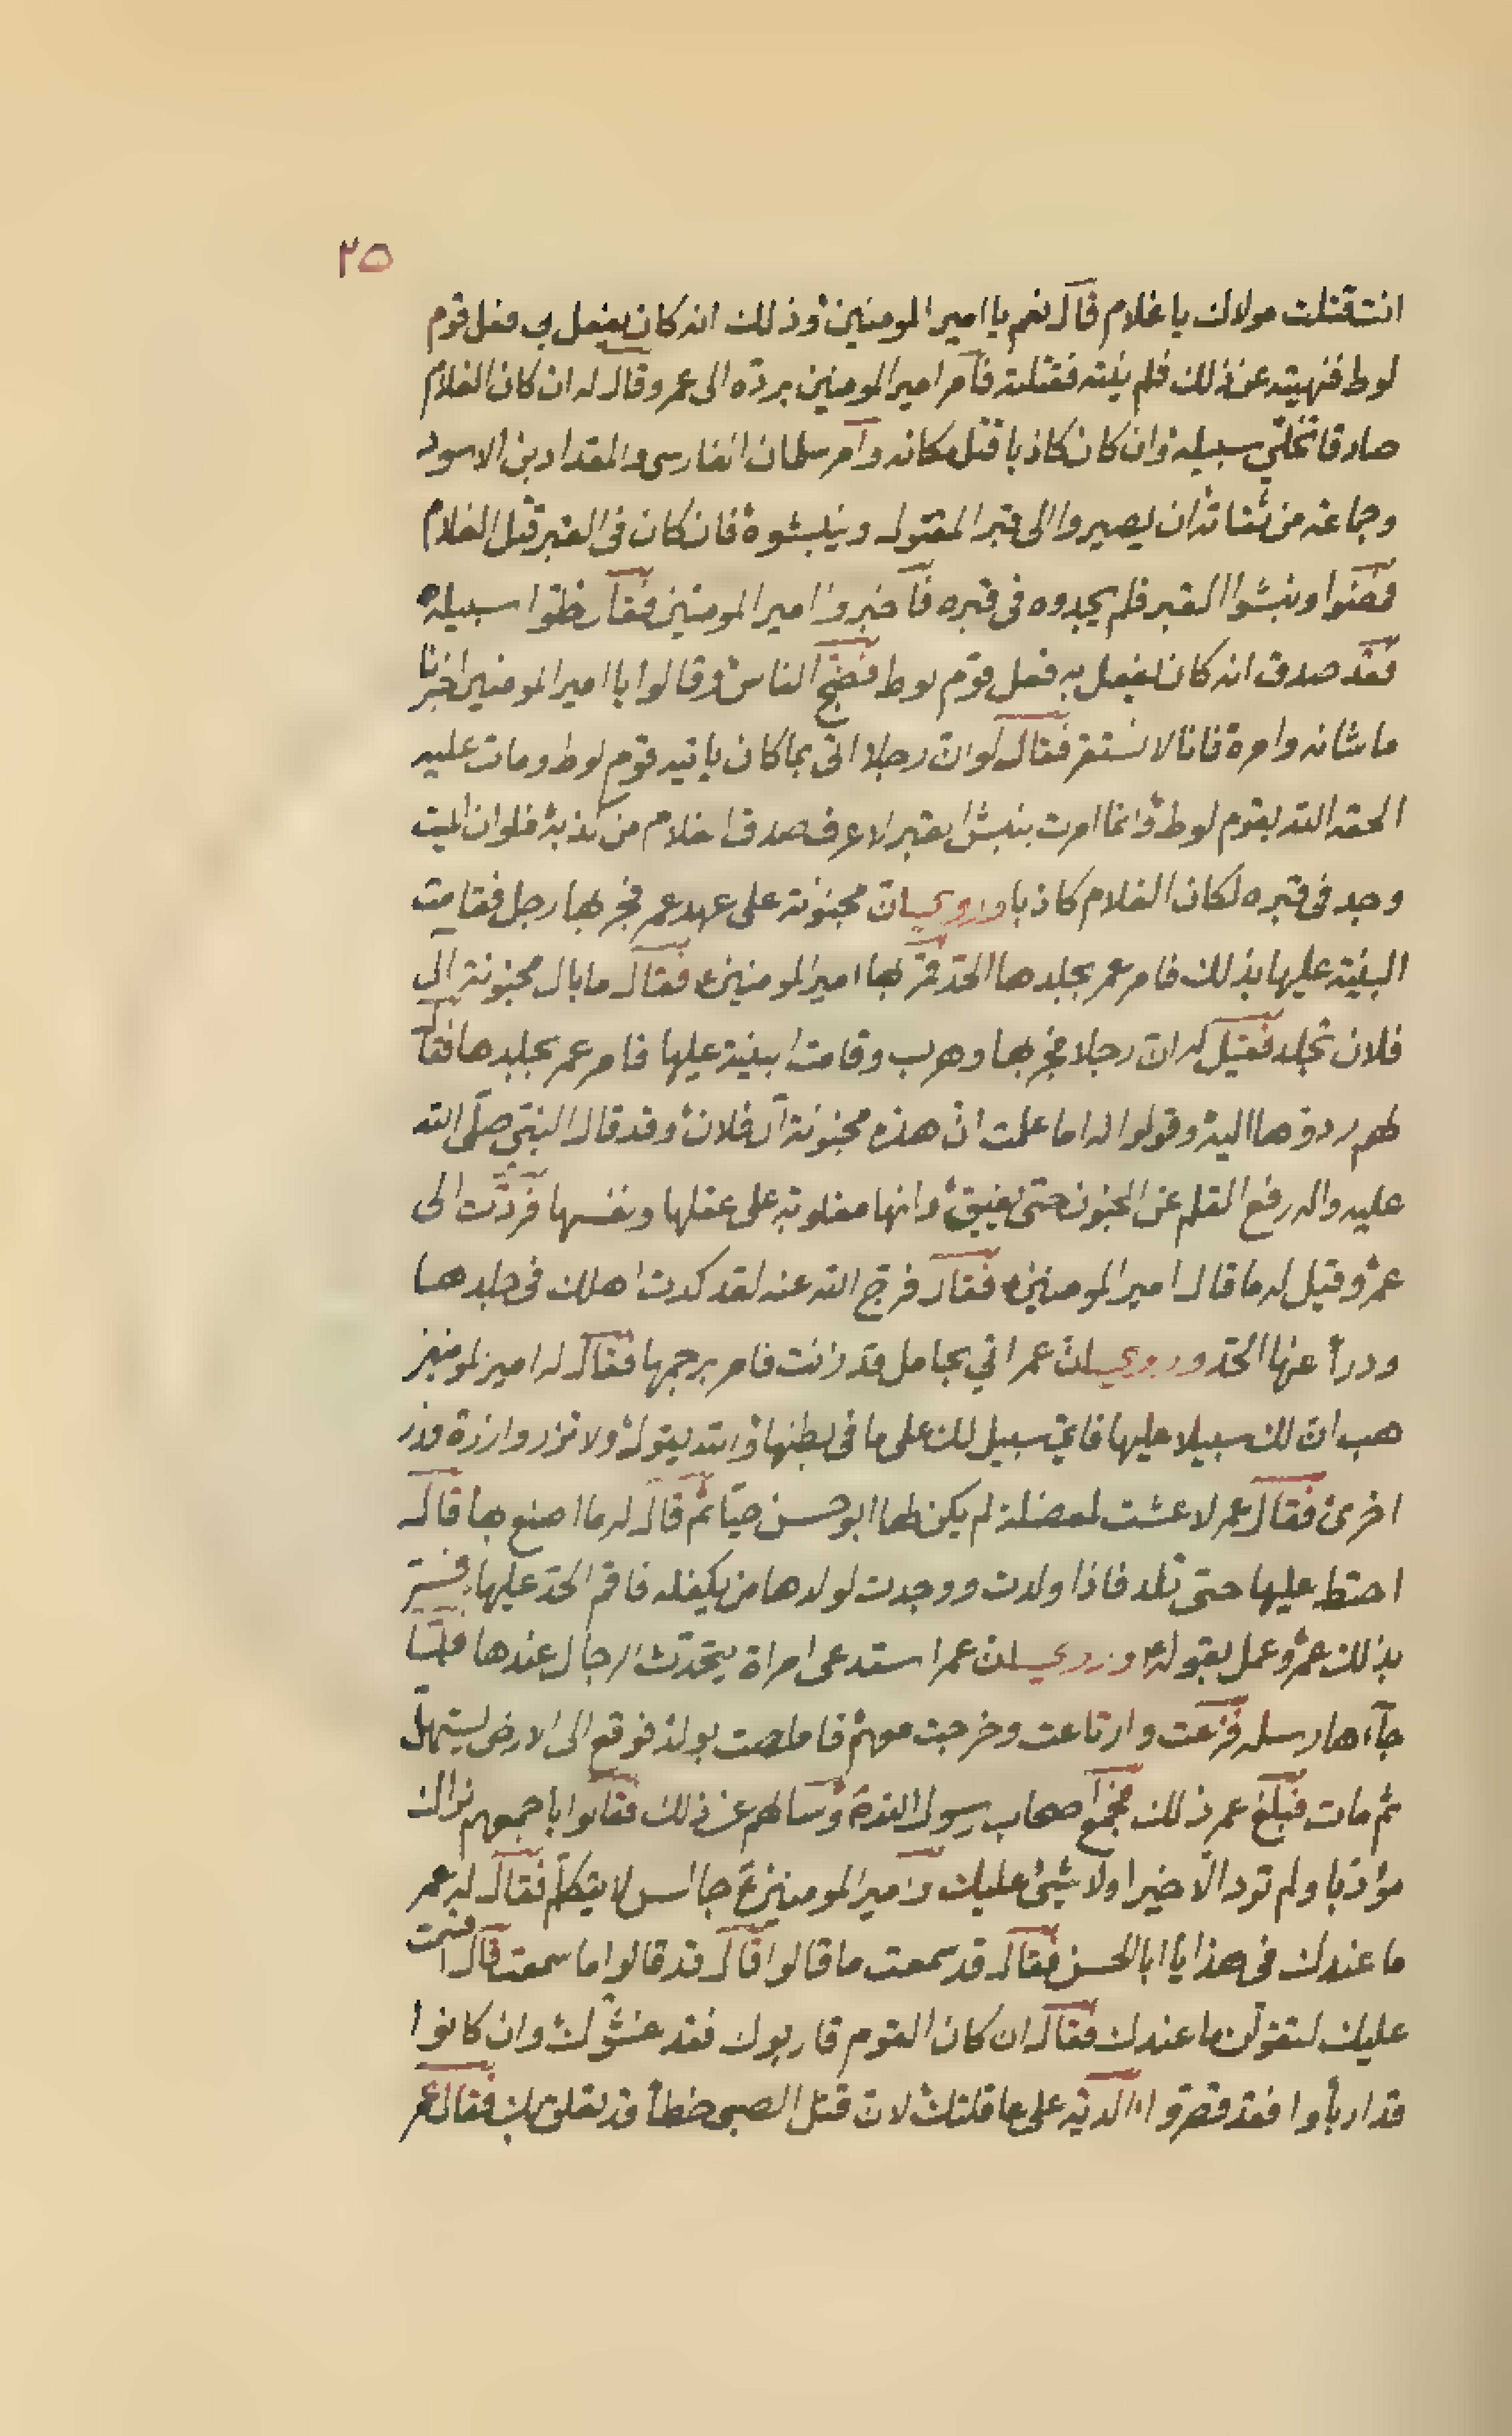 ٢٥
انت قتلت مولاك يا غلام قال نعم يا امير المومنين وذلك انه كان يفعل بي فعل قوم
لوط فنهيته عن ذلك فلم ينته فقتلته فامر امير المومنين بردّه الى عمر وقال له ان كان الغلام
صادقا تخلّي سبيله وان كان كاذبا قتل مكانه وامر سلمان الفارسى والمقداد بن الاسود
وجماعة من ثقاته ان يصيروا الى قبر المقتول وينبشوه فان كان فى القبر قتل الغلام
فمضوا ونبشوا القبر فلم يجدوه فى قبره فاخبروا امير المومنين فقال خلّوا سبيله
فقد صدق انه كان يفعل به فعل قوم لوط فضج الناس وقالوا يا امير المومنين اخبرنا
ما شانه وامره فانا لا نستقر فقال لو ان رجلا اتى بما كان ياتيه قوم لوط ومات عليه
الحقه الله بقوم لوط وانما امرت بنبش القبر لاعرف صدق الغلام من كذبه فلو ان الميت
وجد فى قبره لكان الغلام كاذبا وروي ان مجنونة على عهد عمر فجر بها رجل فقامت
البينة عليها بذلك فامر عمر بجلدها الحدّ فمرّ بها امير المومنين فقال ما بال مجنونة ال
فلان تجلد فقيل له ان رجلا فجر بها وهرب وقامت البينة عليها فامر عمر بجلدها فقال
لهم ردوها اليه وقولوا له اما علمت انّ هذه مجنونة آل فلان وقد قال النبي صلّى الله
عليه واله رفع القلم عن المجنون حتى يفيق وانها مغلوبة على عقلها ونفسها فردّت الى
عمر وقيل له ما قال امير المومنين فقال فرج الله عنه لقد كدت اهلك فى جلدها
ودرأ عنها الحدّ وروي ان عمر اتي بحامل قد زنت فامر برجمها فقال له امير المومنين
هب ان لك سبيلا عليها فاي سبيل لك على ما فى بطنها والله يقول ولا تزر وازرة وزر
اخرى فقال عمر لا عشت لمعضلة لم يكن لها ابو حسن حيّا ثم قال له ما اصنع بها قال
احتط عليها حتى تلد فاذا ولدت ووجدت لولدها من يكفله فاقم الحدّ عليها فسرّ
بذلك عمر وعمل بقوله وروي ان عمر استدعى امراة يتحدّث الرجال عندها فلمّا
جآءها رسله فزعت وارتاعت وخرجت معهم فاملصت بولد فوقع الى الارض يستهلّ
ثم مات فبلغ عمر ذلك فجمع اصحاب رسول الله وسالهم عن ذلك فقالوا باجمعهم نراك
مؤدّبا ولم ترد الّا خيرا ولا شيء عليك وامير المومنين ع جالس لا يتكلّم فقال له عمر
ما عندك فى هذا يا ابا الحسن فقال قد سمعت ما قالوا قال قد قالوا ما سمعت قال اقسمت
عليك لتقولن ما عندك فقال ان كان القوم قاربوك فقد غشّوك وان كانوا
قد ارتأوا فقد قصّروا الدية على عاقلتك لان قتل الصبى خطأ قد تعلق بك فقال عمر